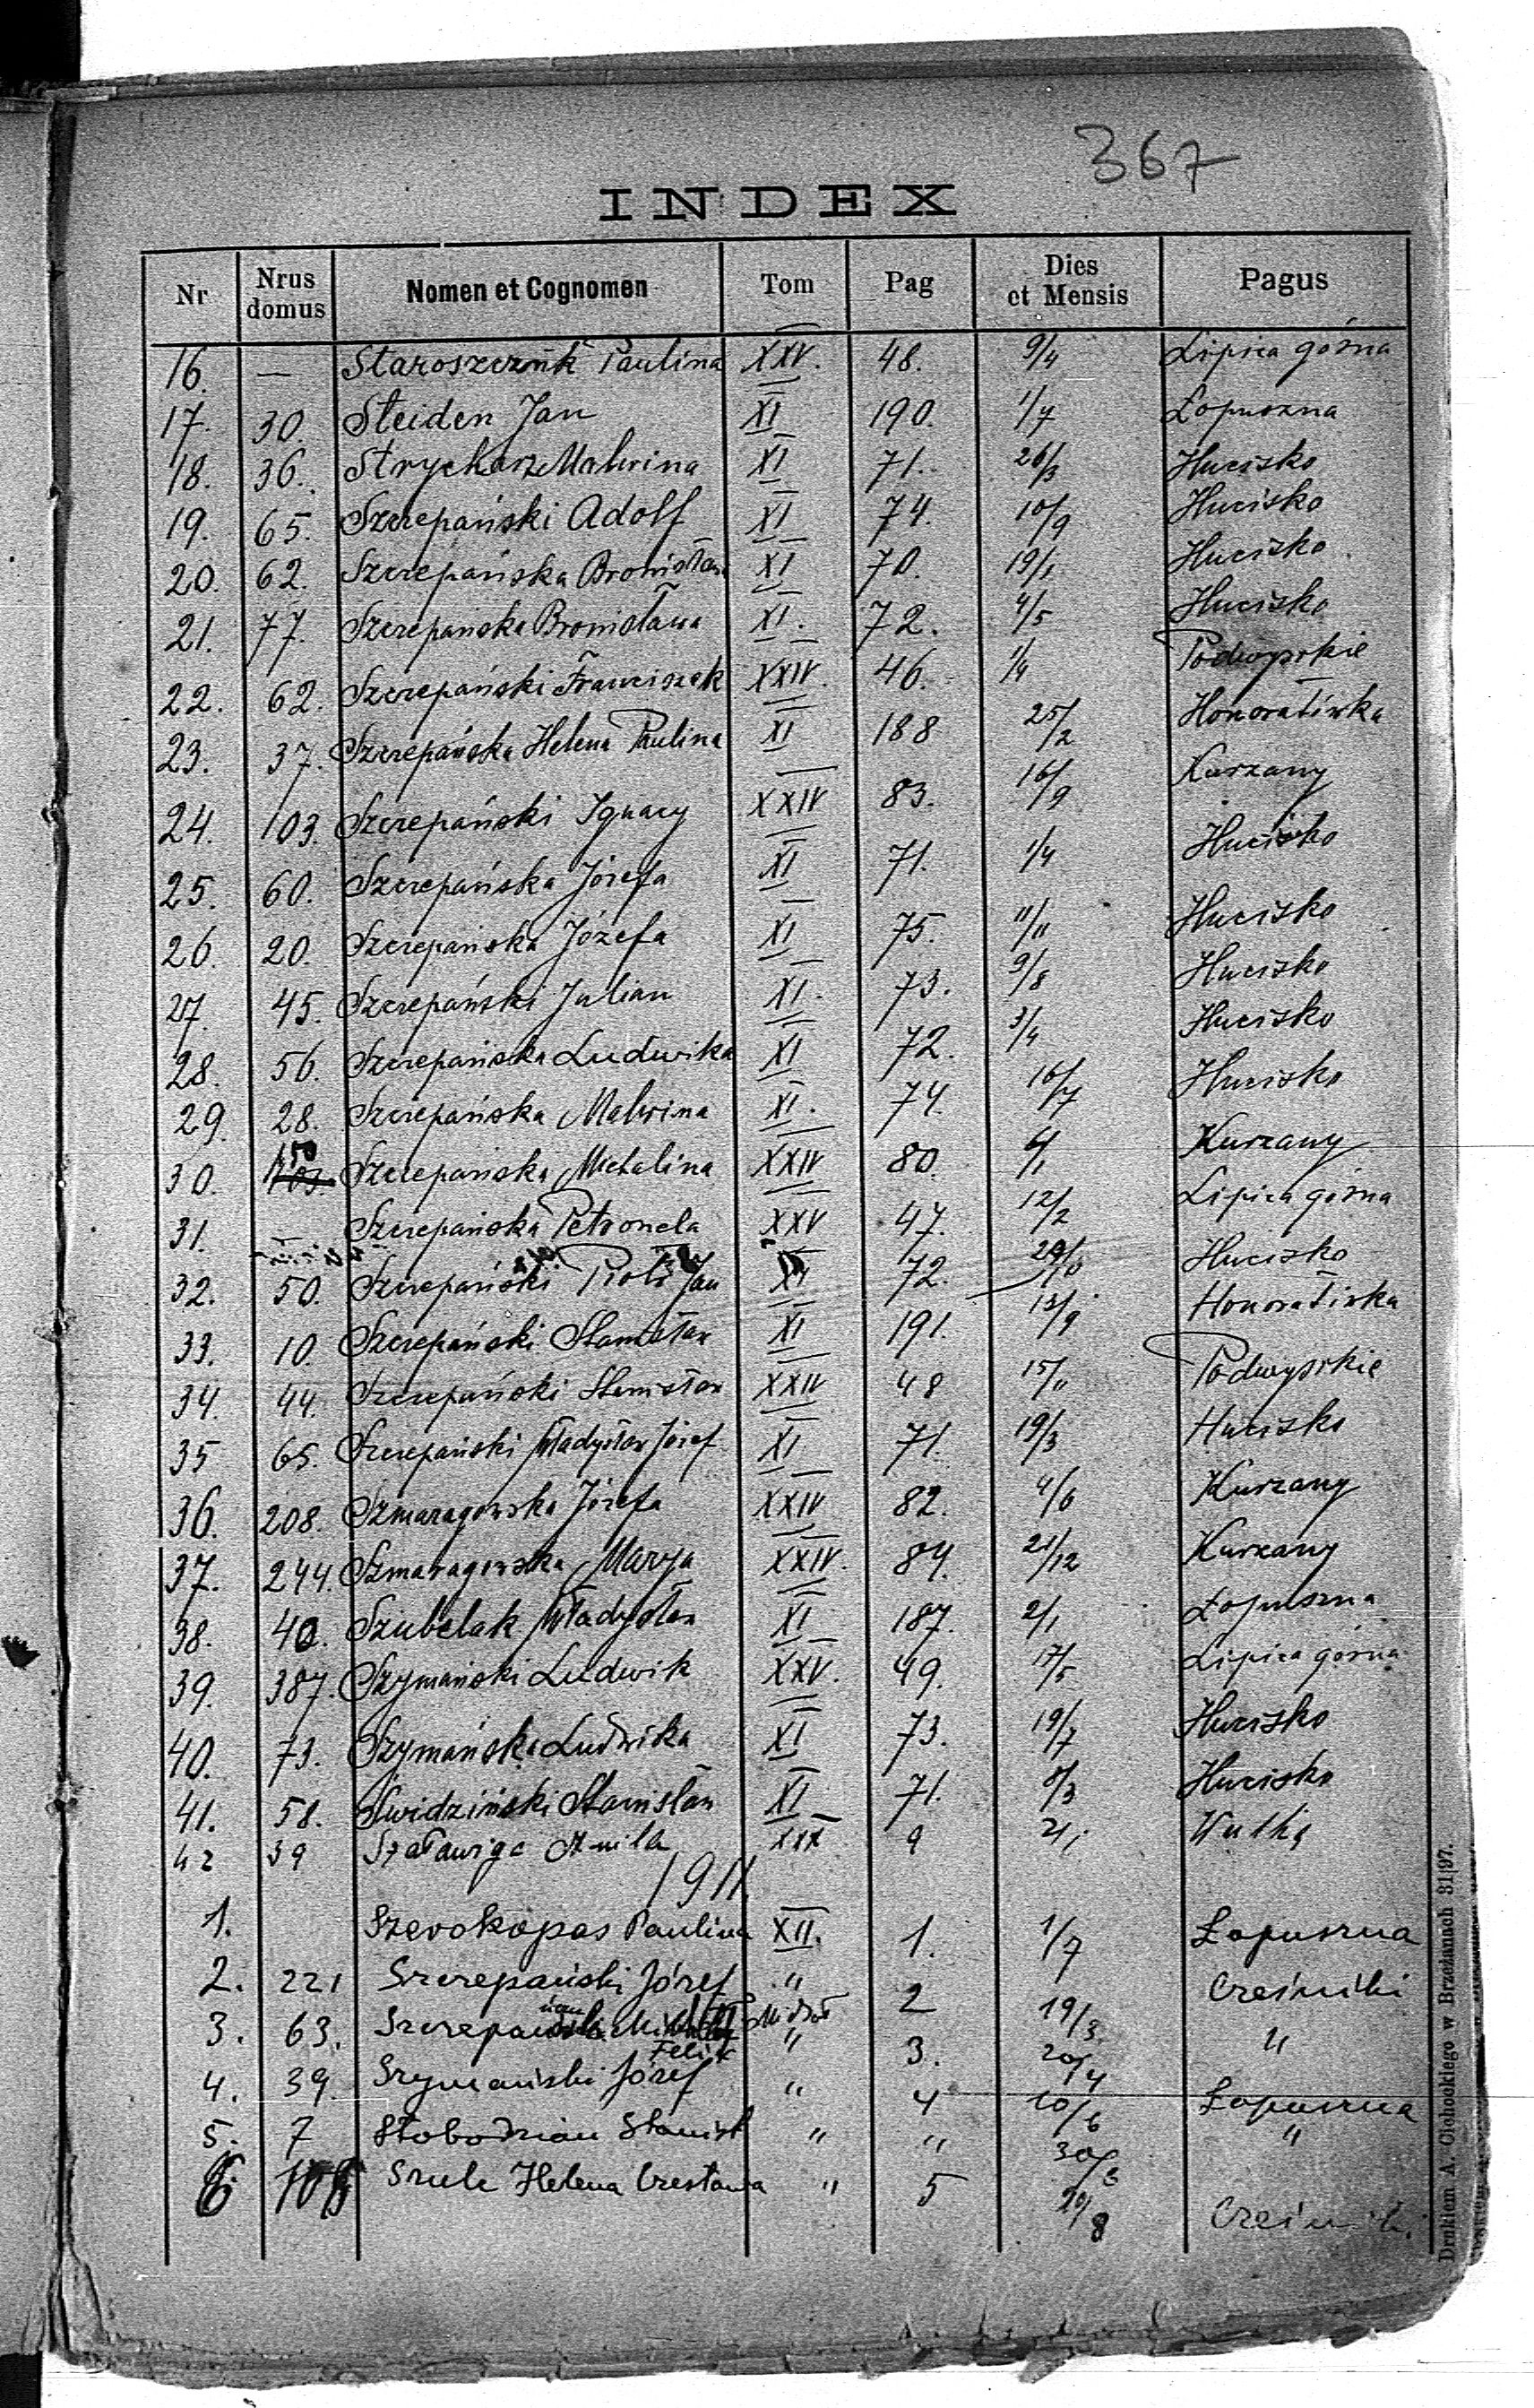 367
INDEX
Nr Nrus domus Nomen et Cognomen Tom Pag Dies et Mensis Pagus
16. — Staroszcznk Paulina XXV. 48. 9/4 Lipica górna
17. 30. Steiden Jan XI 190. 1/7 Łopuszna
18. 36. Strycharz Malwina XI 71. 26/3 Hucisko
19. 65. Szczepański Adolf XI 74. 10/9 Hucisko
20. 62. Szczepańska Bronisława XI 70. 19/1 Hucisko
21. 77. Szczepańska Bronisława XI. 72. 4/5 Hucisko
22. 62. Szczepański Franciszek XXIV. 46. 1/4 Podwysokie
23. 37. Szczepańska Helena Paulina XI 188 25/2 Honoratówka
24. 103. Szczepański Ignacy XXIV 83. 16/9 Kurzany
25. 60. Szczepańska Józefa XI 71. 1/4 Hucisko
26. 20. Szczepańska Józefa XI 75. 11/11 Hucisko
27. 45. Szczepański Julian XI. 73. 9/8 Hucisko
28. 56. Szczepańska Ludwika XI 72. 3/4 Hucisko
29. 28. Szczepańska Malwina XI. 74. 16/7 Hucisko
30. 150 Szczepańska Michalina XXIV 80. 6/1 Kurzany
31. — Szczepańska Petronela XXV 47. 12/2 Lipica górna
32. 50. Szczepański Piotr Jan XI 72. Hucisko
33. 10. Szczepański Stanisław XI 191. 13/9 Honoratówka
34. 44. Szczepański Stanisław XXIV 48 15/11 Podwysokie
35 65. Szczepański Władysław Józef XI 71. 19/3 Hucisko
36. 208. Szmaragowska Józefa XXIV 82. 4/6 Kurzany
37. 244. Szmaragowska Marya XXIV. 84. 21/12 Kurzany
38. 40. Szubelak Władysław XI 187. 2/1 Łopuszna
39. 387. Szymański Ludwik XXV. 49. 17/5 Lipica górna
40. 73. Szymańska Ludwika XI 73. 19/7 Hucisko
41. 58. Swidziński Stanisław XI 71. /3 Hucisko
42 39 XIX 9 Wulka
1911.
1. Szevokopas Paulina XII. 1. 1/7 Łopuszna
2. 221 Szczepański Józef " 2 19/3 Cześniki
3. 63. Michał Felix " 3. 20/4 "
4. 39. Szymański Józef " 4 10/6 Łopuszna
5. 7 Słobodzian Stanisł " " 30/3 "
6 108 Szulc Helena Czesława " 5 20/8 Cześniki
Drukiem A. Cichockiego w Brzeżanach 31|97.